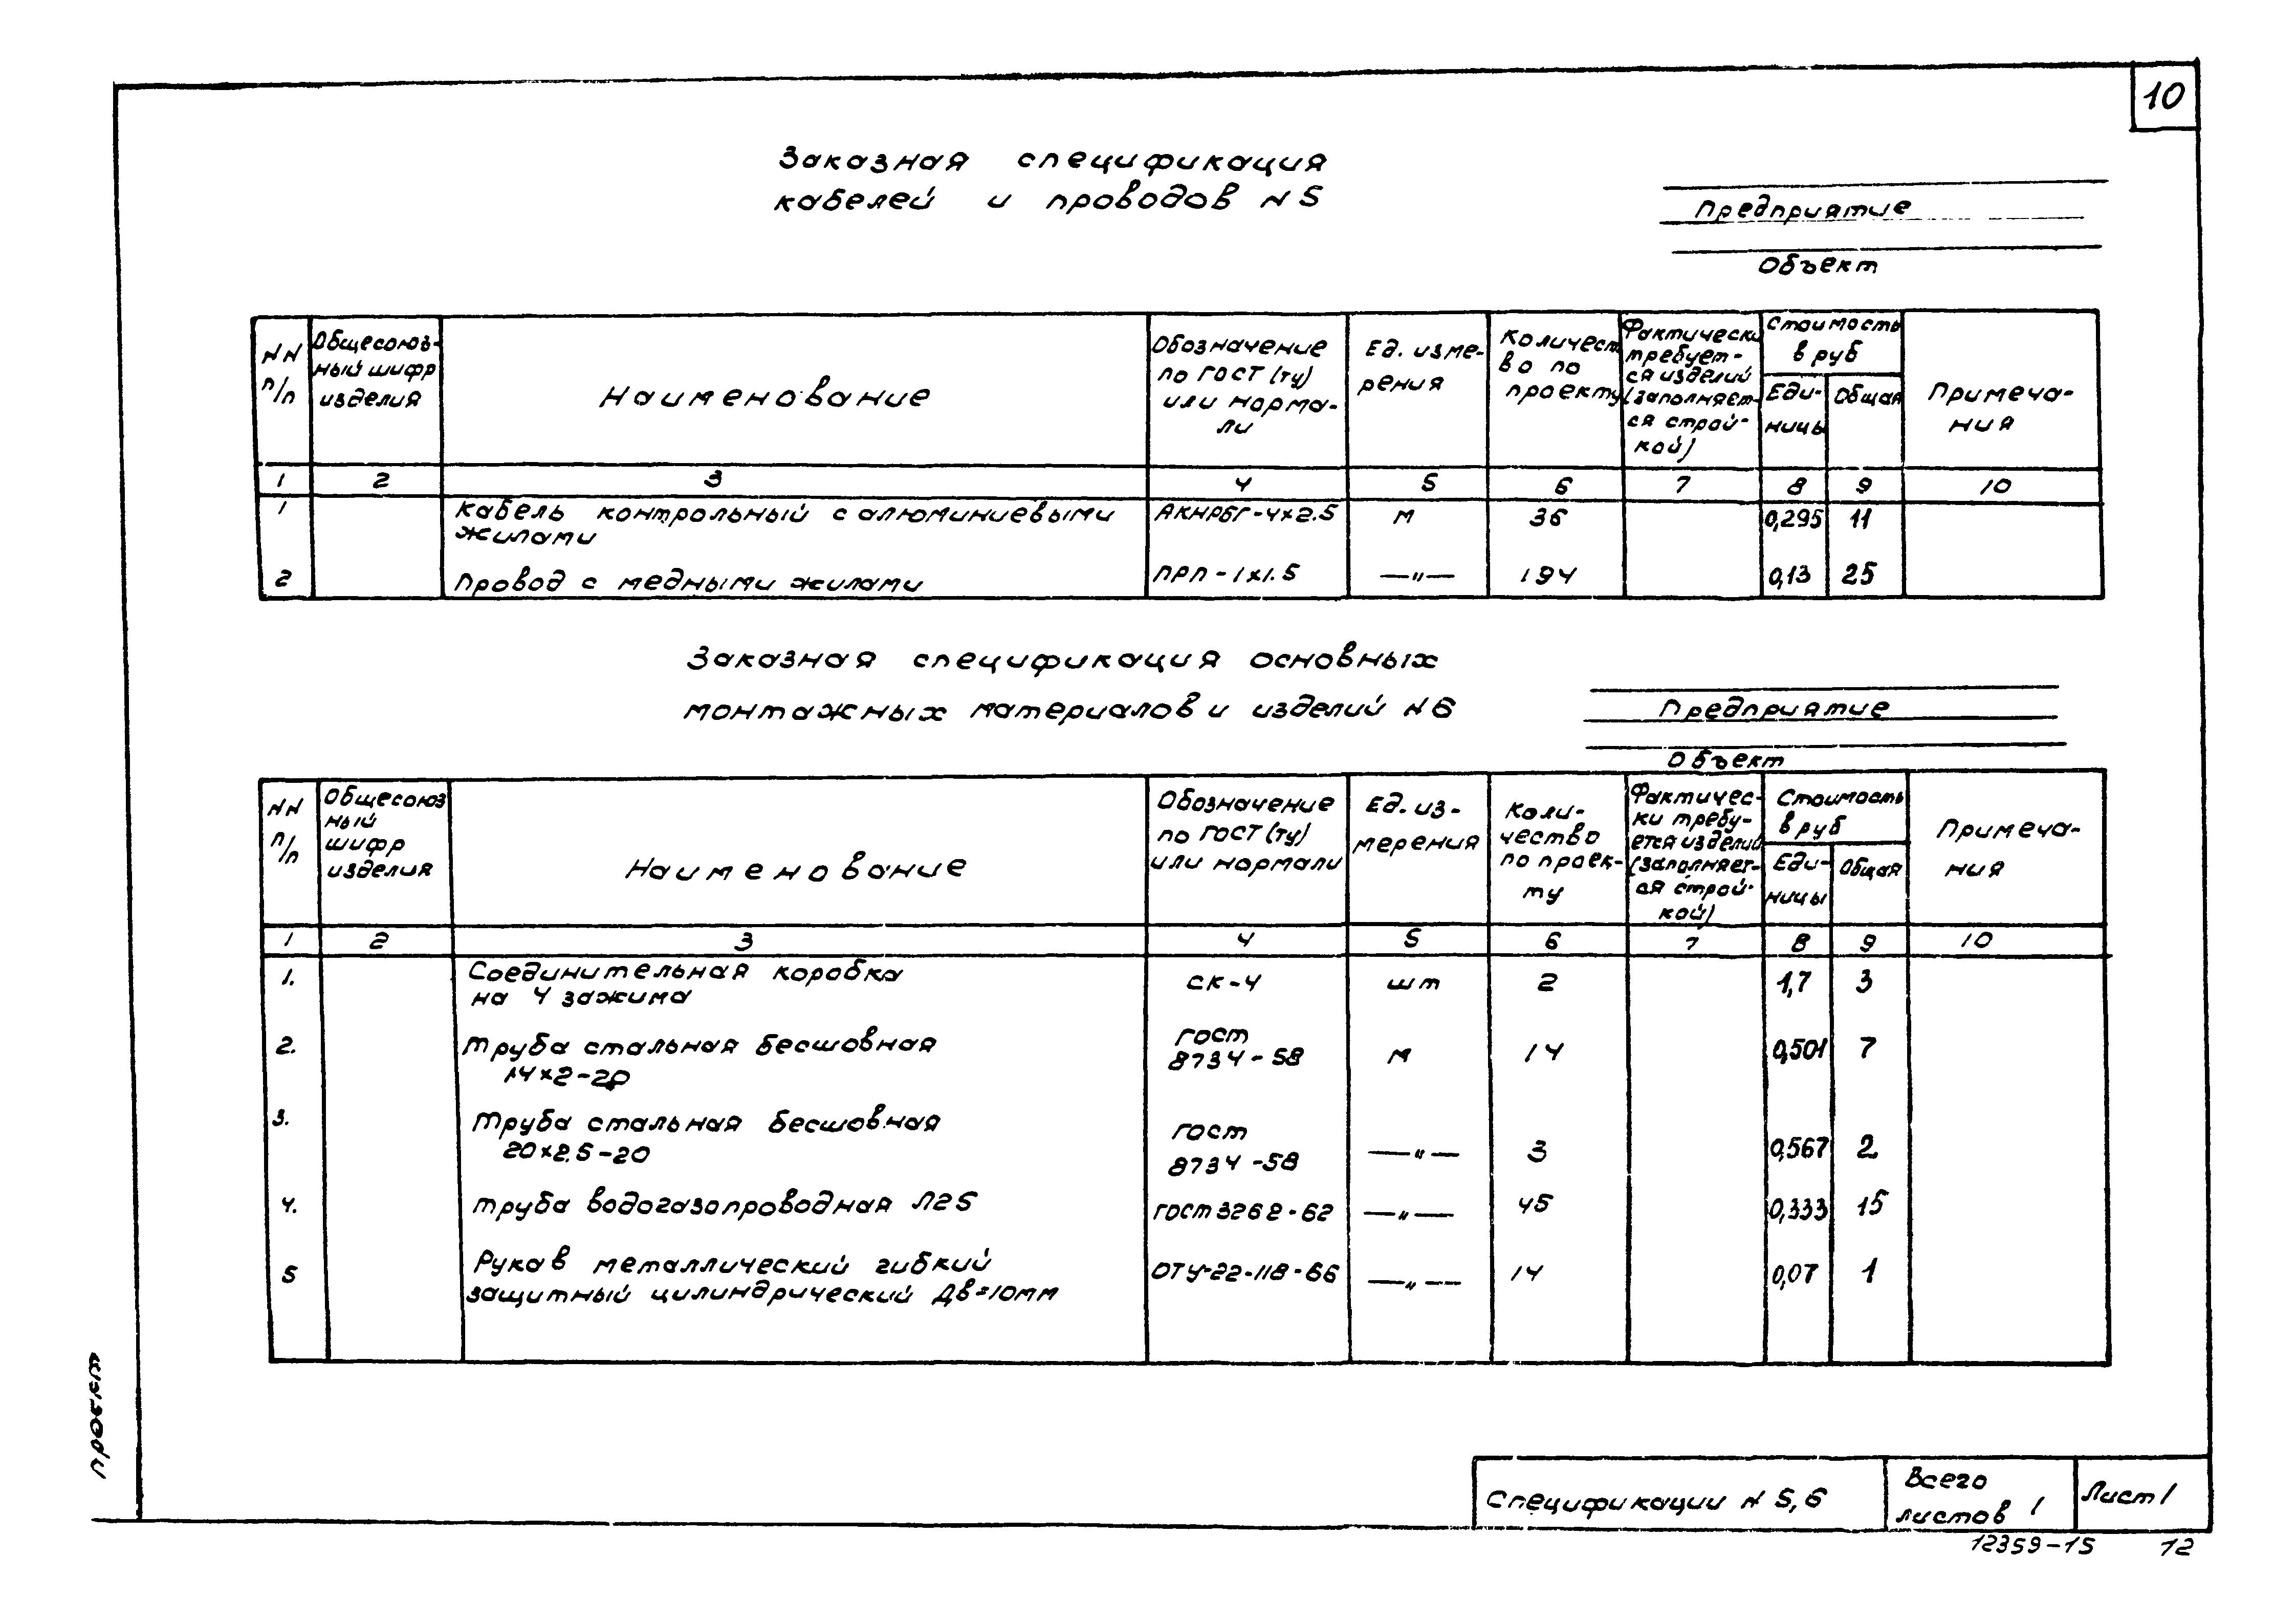 10
Заказная спецификация
кабелей и проводов N 5
Предприятие
Объект
NN п/п
Общесоюз-
ный шифр
изделия
Наименование
Обозначение
по ГОСТ (ту)
или норма-
ли
Ед. изме-
рения
Количест
во по
проекту
Фактически
требует-
ся изделий
(заполняет-
ся строй-
кой)
Стоимость
в руб
Еди-
ницы
Общая
Примеча-
ния
1 2 3 4 5 6 7 8 9 10
1 Кабель контрольный с алюминиевыми АКНРБГ-4х2.5 м 36 0,295 11
жилами
2 Провод с медными жилами ПРП-1х1.5 —"— 194 0,13 25
Заказная спецификация основных
монтажных материалов и изделий N 6
Предприятие
Объект
NN п/п
Общесоюз
ный
шифр
изделия
Наименование
Обозначение
по ГОСТ (ту)
или нормали
Ед. из-
мерения
Коли-
чество
по проек-
ту
Фактичес-
ки требу-
ется изделий
(заполняет-
ся строй-
кой)
Стоимость
в руб
Еди-
ницы
Общая
Примеча-
ния
1 2 3 4 5 6 7 8 9 10
1. Соединительная коробка СК-4 шт 2 1,7 3
на 4 зажима
2. Труба стальная бесшовная ГОСТ
14х2-20 8734-58 м 14 0,501 7
3. Труба стальная бесшовная ГОСТ
20х2.5-20 8734-58 —"— 3 0,567 2
4. Труба водогазопроводная Л25 ГОСТ 3262-62 —"— 45 0,333 15
5 Рукав металлический гибкий ОТУ-22-118-66 —"— 14 0,07 1
защитный цилиндрический Дв=10мм
проект
Спецификации N 5,6
Всего
листов 1
Лист 1
12359-15 12